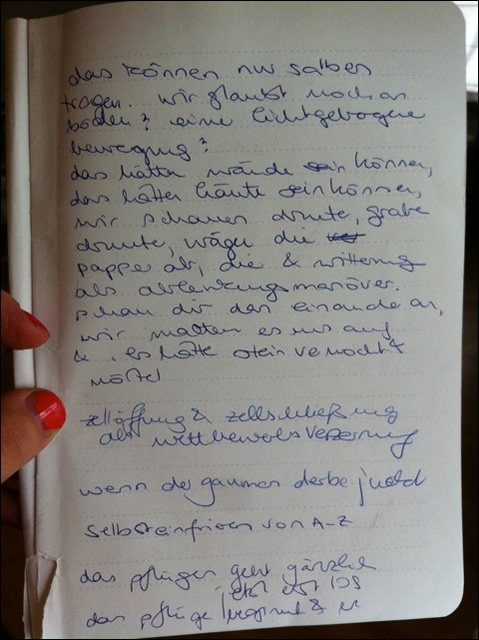 das können nur salben
tragen. wir glaubst noch an
böden? eine lichtgebogene
bewegung?
das hätten wände sein können,
das hätten häute sein können,
wir schauen drunter, grabe
drunter, wägen die
pappe ab, die & witterung
als ablenkungsmanöver.
schau dir das einander an,
wir machen es uns auf
& . es hätte stein vermocht &
mörtel
zellöffnung & zellschließung
als wettbewerbsverzerrung
wenn der gaumen derbe juckt
selbsteinfrieren von A-Z
das pflügen geht gänzlich
jetzt erst los
das pflüge beginnt &